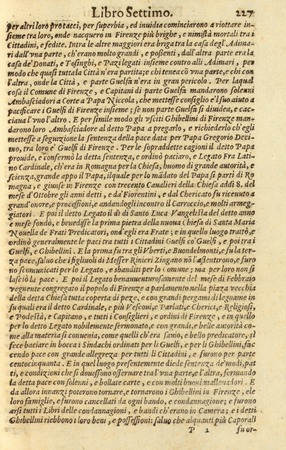 Libro Settimo. 227
per altri loro protacci, per superbia, ed inuidia cominciarono a riottare in-
sieme tra loro, onde nacquero in Firenze più brighe, e nimistà mortali tra i
Cittadini, e fedite. Intra le altre maggiori era briga tra la casa degl'Adimari
dall'vna parte, ch'erano molto grandi, e possenti, dall'altra parte era la
casa de' Donati, e Tosinghi, e Pazzi legati insieme contro alli Adimari, per
modo che quasi tuttala Città n'era partita; chi teneua con vna parte, e chi con
l'altra, onde la Città, e parte Guelfa n'era in gran pericolo. Per laqual
cosa il Comune di Firenze, e Capitani di parte Guelfa mandaro solenni
Ambasciadori a Corte a Papa Niccola, che mettesse consiglio e'l suo aiuto a
pacificare i Guelfi di Firenze insieme; se non parte Guelfa si diuidea, e cac-
ciaua l'vno l'altro. E per simile modo gli vsciti Ghibellini di Firenze man-
darono loro Ambasciadori al detto Papa a pregarlo, e richiederlo ch'egli
mettesse a seguzione la sentenza della pace data per Papa Gregorio Deci-
mo, tra loro e' Guelfi di Firenze. Per le sopraddette cagioni il detto Papa
prouide, e confermò la detta sentenza, e ordinò paciaro, e Legato Fra Lati-
no Cardinale, ch'era in Romagna per la Chiesa, huomo di grande autorità, e
scienza, grande appo il Papa, ilquale per lo mãdato del Papa si partì di Ro
magna, e giunse in Firenze con trecento Caualieri della Chiesa addì 8. del
mese d'Ottobre gli anni detti, e da' Fiorentini, e dal Chericato fu riceuuto a
grand'onore, e processione, e andandogli incontro il Carroccio, e molti armeg-
giatori. E poi il detto Legato il dì di Santo Luca Vangelista del detto anno
e mese fondò, e benedisse la prima pietra della nuoua Chiesa di Santa Maria
Nouella de' Frati Predicatori, ond'egli era Frate; e in quello luogo trattò, e
ordinò generalmente le paci tra tutti i Cittadini Guelfi co' Guelfi, e poi tra
Guelfi, e Ghibellini. E la prima fu tra gli Vberti, e Buondelmonti, e fu la ter-
za pace, saluo che i figliuoli di Messer Rinieri Zingano nō l'assentirono, e furo
no scomunicati per lo Legato, e isbanditi per lo Comune; ma per loro non si
lasciò la pace. E poi il Legato bene auenturosamente del mese di Febbraio
vegnente congregato il popolo di Firenze a parlamento nella piazza vecchia
della detta Chiesa tutta coperta di pezze, e con grandi pergami di legname in
su quali era il detto Cardinale, e più Vescoui, e Parlati, e Cherici, e Religiosi,
e Podestà, e Capitano, e tutti i Consiglieri, e ordini di Firenze, e in quello
per lo detto Legato nobilmente sermonato, e con grandi, e belle autorità co-
me alla materia si conuenia, come quelli ch'era sauio, e bello predicatore, si
fece basciare in bocca i Sindachi ordinati per li Guelfi, e per li Ghibellini, fa-
cendo pace con grande allegrezza per tutti li Cittadini, e furono per parte
centocinquanta. E in quel luogo presentemente diede sentenza de' modi, pat
ti, e condizioni che si douessono osseruare tra l'vna parte, e l'altra, fermando
la detta pace con solenni, e vallate carte, e con molti buoni malleuadori. E
da allora innanzi poterono tornare, e tornorono i Ghibellini in Firenze, e le
loro famiglie, e furono cancellati da ogni bando, e condannagione, e furono
arsi tutti i Libri delle condannagioni, e bandi ch'erano in Camera; e i detti
Ghibellini riebbono i loro beni, e possessioni; saluo che alquanti più Caporali
P 2 fu or-